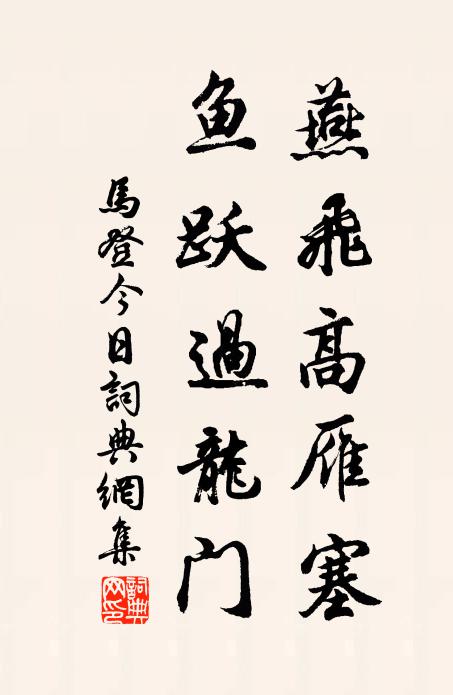 燕飛高雁塞
鱼跃過龍门
馬登今日詞典網集
詞典网印